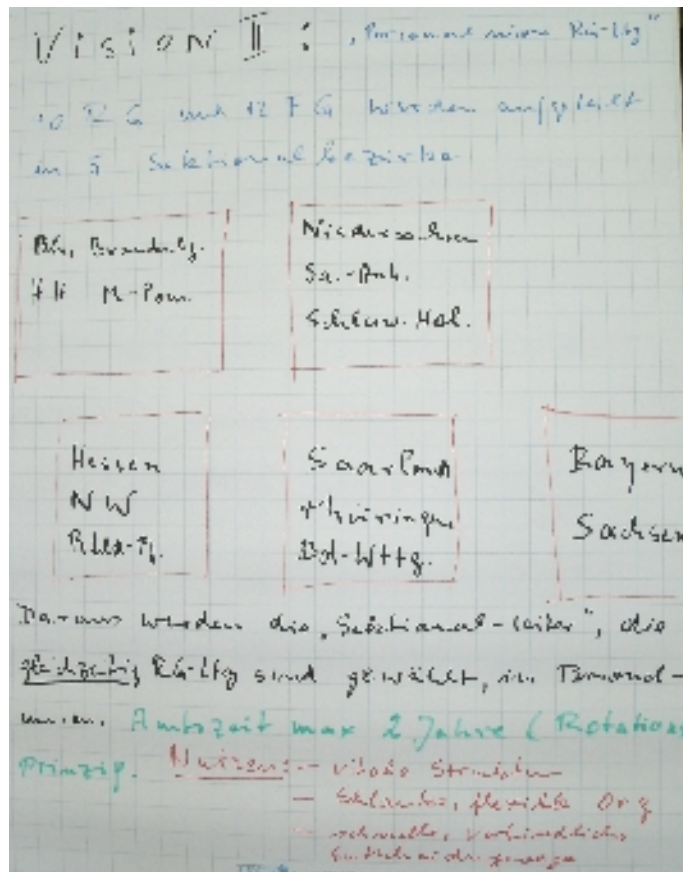 Vision II : "Personalunion RG-Ltg"
10 RG und 12 FG werden aufgeteilt
in 5 Sektionalbezirke
Bln, Brandenbg.
HH M-Pom.
Niedersachsen
Sa.-Anh.
Schlesw. Hol.
Hessen
NW
Rhld-Pf.
Saarland
Thüringen
Bd-Wttg.
Bayern
Sachsen
Daraus werden die "Sektional-Leiter", die
gleichzeitig RG-Ltg sind gewählt, in Personal-
union. Amtszeit max 2 Jahre (Rotations
Prinzip. Nutzen: -
- Schlanke, flexible Org
- schnelle, verbindliche